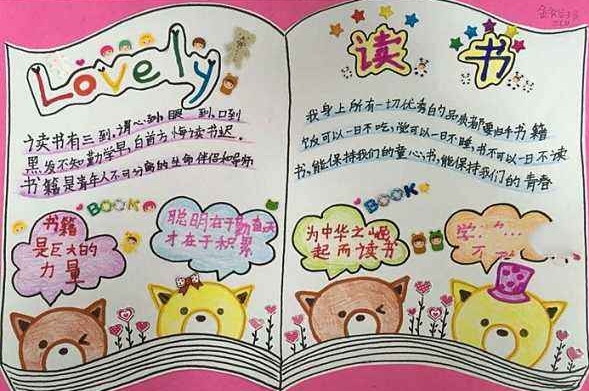 Lovely
读书有三到，谓心到，眼到，口到
黑发不知勤学早，白首方悔读书迟。
书籍是青年人不可分离的生命伴侣和导师
BOOK
书籍
是巨大的
力量
聪明在于勤奋,天
才在于积累
读书
我身上所有一切优秀的品质都要归于书籍
饭可以一日不吃，觉可以一日不睡，书不可以一日不读
书，能保持我们的童心；书，能保持我们的青春
BOOK
为中华之崛
起而读书
学
不